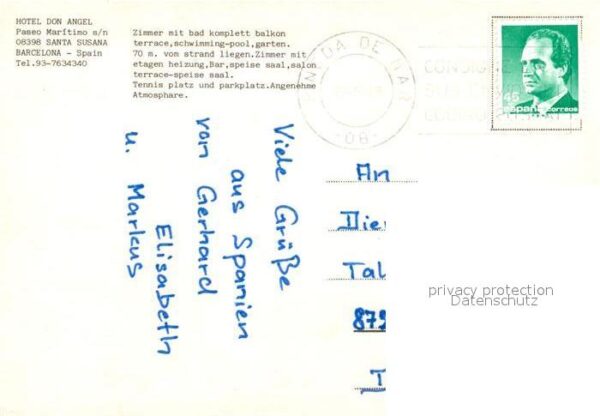 HOTEL DON ANGEL
Paseo Marítimo s/n
08398 SANTA SUSANA
BARCELONA - Spain
Tel.93-7634340
Zimmer mit bad komplett balkon
terrace,schwimming-pool,garten.
70 m. vom strand liegen.Zimmer mit
etagen heizung,Bar,speise saal,salon
terrace-speise saal.
Tennis platz und parkplatz.Angenehme
Atmosphare.
DA DE MAR
-08-
45
españa correos
Viele Grüße
aus Spanien
von Gerhard
Elisabeth
u. Markus
An
Tal
879
privacy protection
Datenschutz